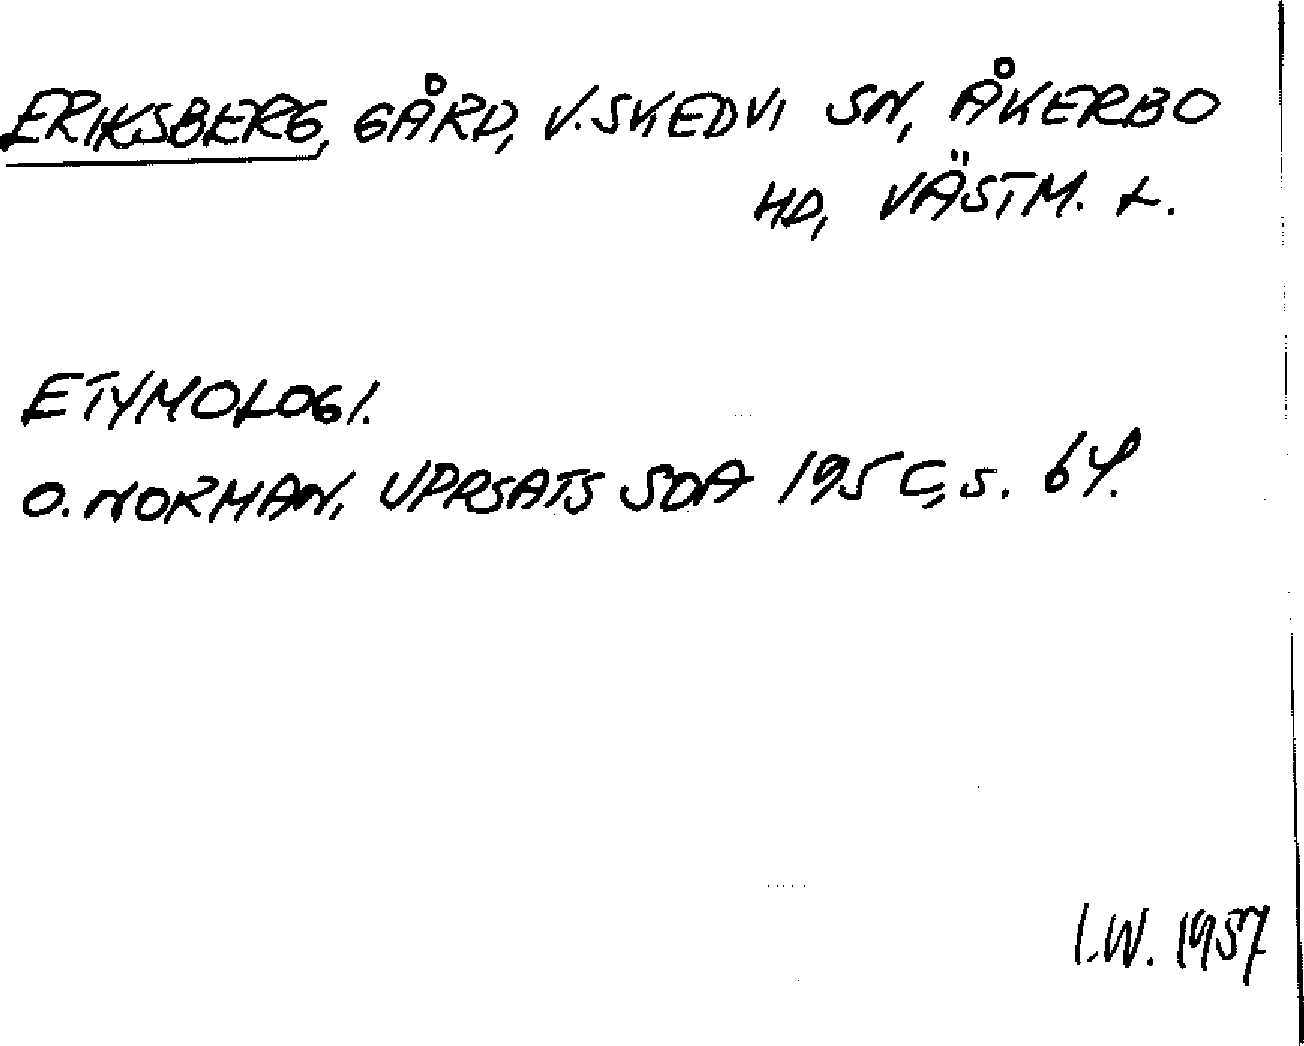 ERIKSBERG, GÅRD, V. SKEDVI SN, ÅKERBO
HD, VÄSTM. L.
ETYMOLOGI.
O. NORMAN, UPPSATS SOA 195 C, s. 64.
I.W. 1957